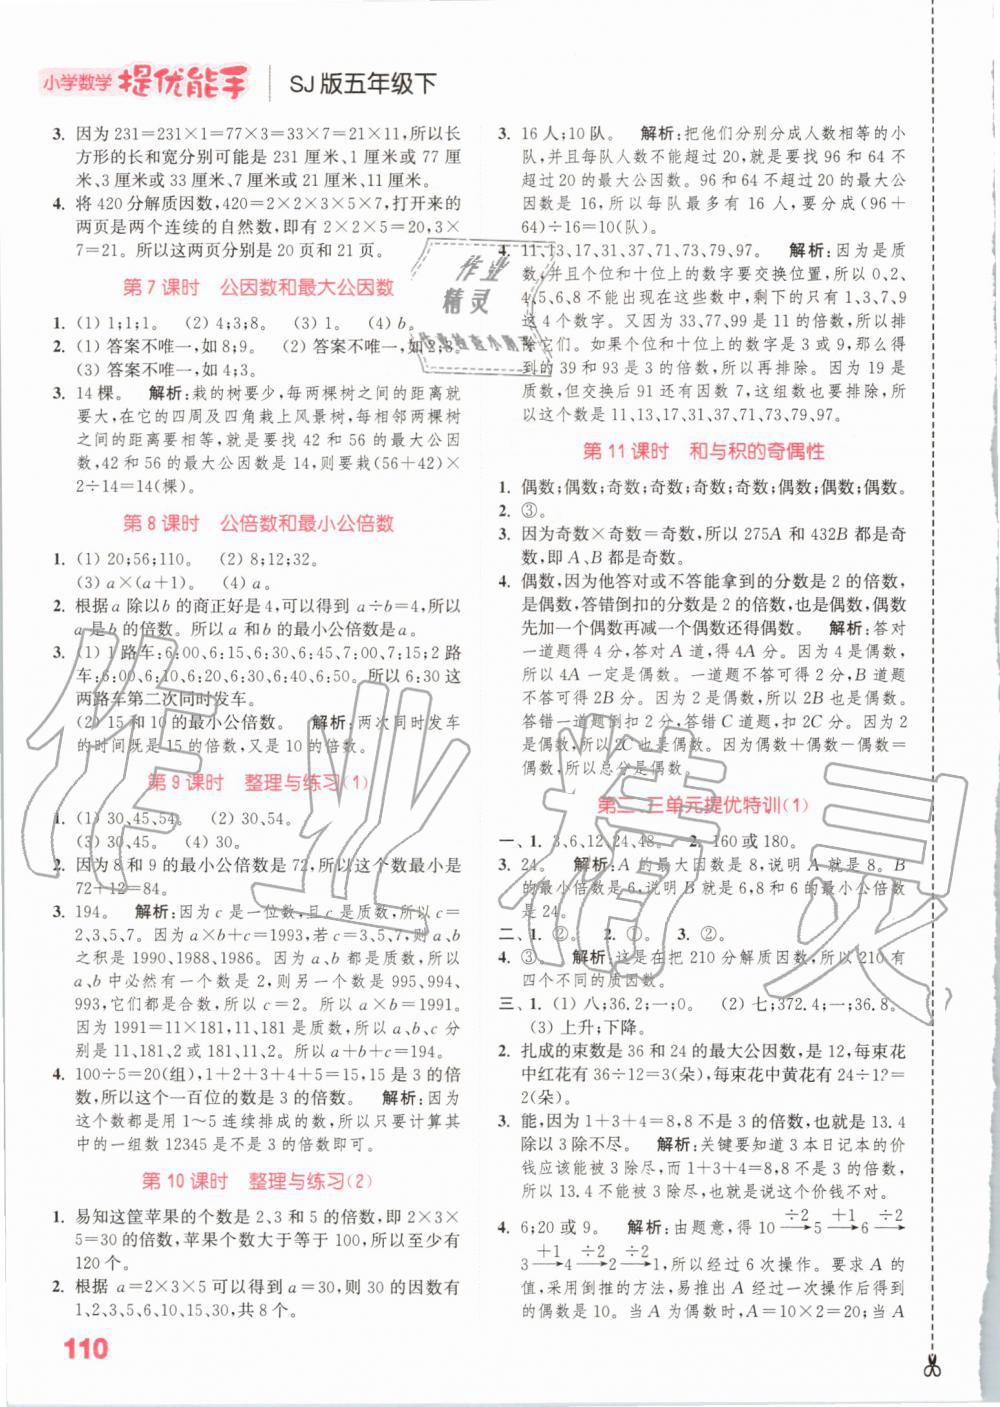 小学数学 提优能手 SJ版五年级下
3. 因为231=231×1=77×3=33×7=21×11,所以长
方形的长和宽分别可能是 231 厘米、1 厘米或 77 厘
米、3 厘米或 33 厘米、7 厘米或 21 厘米、11 厘米。
4. 将 420 分解质因数,420=2×2×3×5×7,打开来的
两页是两个连续的自然数,即有 2×2×5=20,3×
7=21。所以这两页分别是 20 页和 21 页。
第 7 课时 公因数和最大公因数
1. (1) 1;1;1。 (2) 4;3;8。 (3) 1。 (4) b。
2. (1) 答案不唯一,如 8;9。 (2) 答案不唯一,如 2;8。
(3) 答案不唯一,如 4;3。
3. 14 棵。 解析:栽的树要少,每两棵树之间的距离就
要大,在它的四周及四角栽上风景树,每相邻两棵树
之间的距离要相等,就是要找 42 和 56 的最大公因
数,42 和 56 的最大公因数是 14,则要栽(56+42)×
2÷14=14(棵)。
第 8 课时 公倍数和最小公倍数
1. (1) 20;56;110。 (2) 8;12;32。
(3) a×(a+1)。 (4) a。
2. 根据 a 除以 b 的商正好是 4,可以得到 a÷b=4,所以
a 是 b 的倍数。所以 a 和 b 的最小公倍数是 a。
3. (1) 1 路车:6:00、6:15、6:30、6:45、7:00、7:15;2 路
车:6:00、6:10、6:20、6:30、6:40、6:50。所以 6:30 这
两路车第二次同时发车。
(2) 15 和 10 的最小公倍数。 解析:两次同时发车
的时间既是 15 的倍数,又是 10 的倍数。
第 9 课时 整理与练习(1)
1. (1) 30、45、54。 (2) 30、54。
(3) 30、45。 (4) 30。
2. 因为 8 和 9 的最小公倍数是 72,所以这个数最小是
72+12=84。
3. 194。 解析:因为 c 是一位数,且 c 是质数,所以 c=
2、3、5、7。因为 a×b+c=1993,若 c=3、5、7,则 a、b
之积是 1990、1988、1986。因为 a、b 都是质数,所以
a、b 中必然有一个数是 2,则另一个数是 995、994、
993,它们都是合数,所以 c=2。所以 a×b=1991。
因为 1991=11×181,11、181 是质数,所以 a、b、c 分
别是 11、181、2 或 181、11、2。所以 a+b+c=194。
4. 100÷5=20(组),1+2+3+4+5=15,15 是 3 的倍
数,所以这个一百位的数是 3 的倍数。 解析:因为
这个数都是用 1～5 连续排成的数,所以只要计算其
中的一组数 12345 是不是 3 的倍数即可。
第 10 课时 整理与练习(2)
1. 易知这筐苹果的个数是 2、3 和 5 的倍数,即 2×3×
5=30 的倍数,苹果个数大于等于 100,所以至少有
120 个。
2. 根据 a=2×3×5 可以得到 a=30,则 30 的因数有
1、2、3、5、6、10、15、30,共 8 个。
110
3. 16 人;10 队。 解析:把他们分别分成人数相等的小
队,并且每队人数不能超过 20,就是要找 96 和 64 不
超过 20 的最大公因数。96 和 64 不超过 20 的最大公
因数是 16,所以每队最多有 16 人,要分成(96+
64)÷16=10(队)。
4. 11、13、17、31、37、71、73、79、97。 解析:因为是质
数,并且个位和十位上的数字要交换位置,所以 0、2、
4、5、6、8 不能出现在这些数中,剩下的只有 1、3、7、9
这 4 个数字。又因为 33、77、99 是 11 的倍数,所以排
除它们。如果个位和十位上的数字是 3、9,那么得
到的 39 和 93 是 3 的倍数,所以再排除。因为 19 是
质数,但交换后 91 还有因数 7,这组数也要排除,所
以这个数是 11、13、17、31、37、71、73、79、97。
第 11 课时 和与积的奇偶性
1. 偶数;偶数;奇数;奇数;奇数;奇数;偶数;偶数;偶数。
2. ③。
3. 因为奇数×奇数=奇数,所以 275A 和 432B 都是奇
数,即 A、B 都是奇数。
4. 偶数,因为他答对或不答能拿到的分数是 2 的倍数,
是偶数,答错倒扣的分数是 2 的倍数,也是偶数,偶数
先加一个偶数再减一个偶数还得偶数。 解析:答对
一道题得 4 分,答对 A 道,得 4A 分。因为 4 是偶数,
所以 4A 一定是偶数。一道题不答可得 2 分,B 道题
不答可得 2B 分。因为 2 是偶数,所以 2B 也是偶数。
答错一道题倒扣 2 分,答错 C 道题,扣 2C 分。因为 2
是偶数,所以 2C 也是偶数。因为偶数+偶数−偶数=
偶数,所以总分是偶数。
第二、三单元提优特训(1)
一、1. 3,6,12,24,48。 2. 160 或 180。
3. 24。 解析:A 的最大因数是 8,说明 A 就是 8。B
的最小倍数是 6,说明 B 就是 6,8 和 6 的最小公倍数
是 24。
二、1. ②。 2. ①。 3. ②。
4. ③。 解析:这是在把 210 分解质因数,所以 210 有
四个不同的质因数。
三、1. (1) 八;36.2;一;0。 (2) 七;372.4;一;36.8。
(3) 上升;下降。
2. 扎成的束数是 36 和 24 的最大公因数,是 12,每束花
中红花有 36÷12=3(朵),每束花中黄花有 24÷12=
2(朵)。
3. 能,因为 1+3+4=8,8 不是 3 的倍数,也就是 13.4
除以 3 除不尽。 解析:关键要知道 3 本日记本的价
钱应该能被 3 除尽,而 1+3+4=8,8 不是 3 的倍数,
所以 13.4 不能被 3 除尽,也就是说这个价钱不对。
4. 6;20 或 9。 解析:由题意,得 10 —÷2→ 5 —+1→ 6 —÷2→
3 —+1→ 4 —÷2→ 2 —÷2→ 1,所以经过 6 次操作。要求 A 的
值,采用倒推的方法,易推出 A 经过一次操作后得到
的偶数是 10。当 A 为偶数时,A=10×2=20;当 A
作业精灵
作业精灵